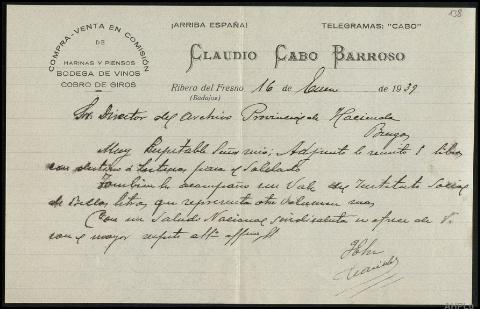 138
¡ARRIBA ESPAÑA!
TELEGRAMAS: "CABO"
COMPRA-VENTA EN COMISIÓN
DE
HARINAS Y PIENSOS
BODEGA DE VINOS
COBRO DE GIROS
CLAUDIO CABO BARROSO
Ribera del Fresno 16 de Enero de 1939
(Badajoz)
Sr. Director del Archivo Provincial de Hacienda
Burgos
Muy Respetable Señor mio; Adjunto le remito 1 libro
con destino a Lecturas para el Soldado
Tambien le acompaño un Vale del Instituto Social
de Bellas letras, que representa otro volumen mas
Con un Saludo Nacional Sindicalista se ofrece de V.
con el mayor respeto